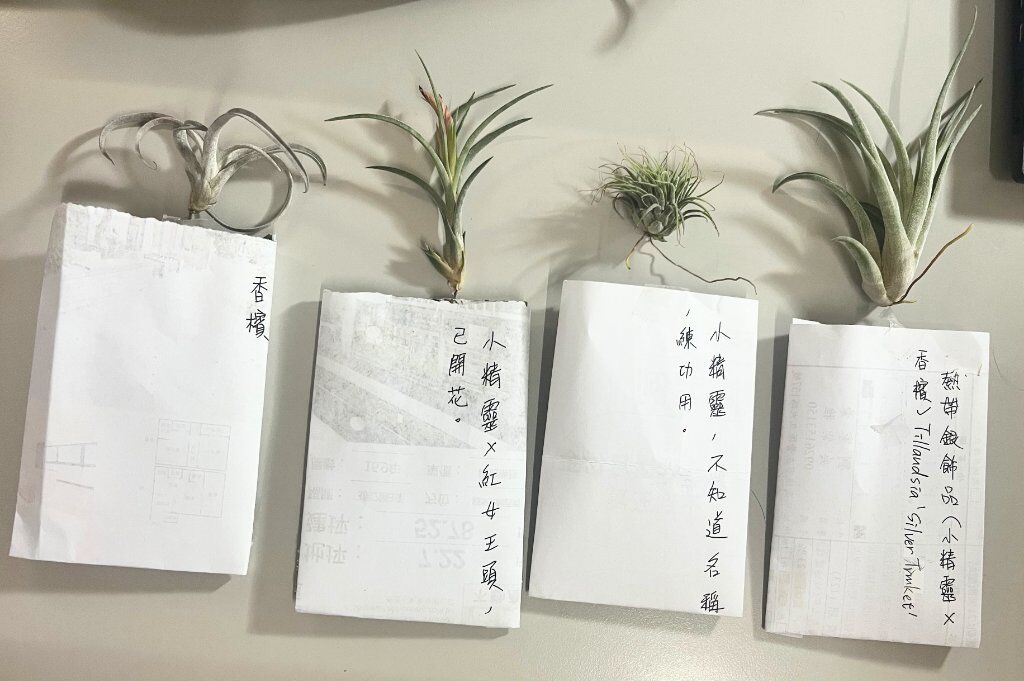 香檳
小精靈×紅女王頭,
已開花。
小精靈,不知道名稱
,練功用。
熱帶銀飾品(小精靈×
香檳) Tillandsia 'Silver Trinket'
52.78
7.22